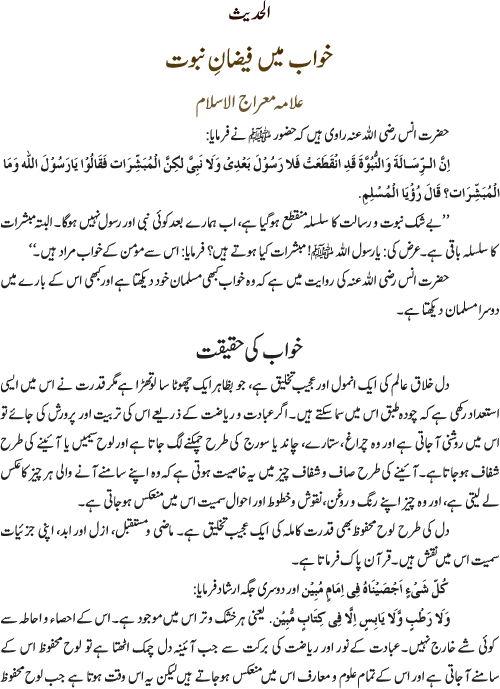 الحدیث
خواب میں فیضانِ نبوت
علامہ معراج الاسلام
حضرت انس رضی اللہ عنہ راوی ہیں کہ حضور ﷺ نے فرمایا:
اِنَّ الرِّسَالَةَ وَالنُّبُوَّةَ قَدِ انْقَطَعَتْ فَلَا رَسُوْلَ بَعْدِیْ وَلَا نَبِیَّ لٰکِنَّ الْمُبَشِّرَات فَقَالُوْا یَارَسُوْلَ اللّٰہ وَمَا
الْمُبَشِّرَات؟ قَالَ رُؤْیَا الْمُسْلِمِ.
’’بے شک نبوت و رسالت کا سلسلہ منقطع ہوگیا ہے، اب ہمارے بعد کوئی نبی اور رسول نہیں ہوگا۔ البتہ مبشرات
کا سلسلہ باقی ہے۔ عرض کی: یارسول اللہ ﷺ! مبشرات کیا ہوتے ہیں؟ فرمایا: اس سے مؤمن کے خواب مراد ہیں۔‘‘
حضرت انس رضی اللہ عنہ کی روایت میں ہے کہ وہ خواب کبھی مسلمان خود دیکھتا ہے اور کبھی اس کے بارے میں
دوسرا مسلمان دیکھتا ہے۔
خواب کی حقیقت
دل خلاق عالم کی ایک انمول اور عجیب تخلیق ہے، جو بظاہر ایک چھوٹا سا لوتھڑا ہے مگر قدرت نے اس میں ایسی
استعداد رکھی ہے کہ چودہ طبق اس میں سما سکتے ہیں۔ اگر عبادت و ریاضت کے ذریعے اس کی تربیت اور پرورش کی جائے تو
اس میں روشنی آجاتی ہے اور وہ چراغ، ستارے، چاند یا سورج کی طرح چمکنے لگ جاتا ہے اور لوح سیمیں یا آئینے کی طرح
شفاف ہوجاتا ہے۔ آئینے کی طرح صاف و شفاف چیز میں یہ خاصیت ہوتی ہے کہ وہ اپنے سامنے آنے والی ہر چیز کا عکس
لے لیتی ہے، اور وہ چیز اپنے رنگ و روغن، نقوش و خطوط اور احوال سمیت اس میں منعکس ہوجاتی ہے۔
دل کی طرح لوح محفوظ بھی قدرت کاملہ کی ایک عجیب تخلیق ہے۔ ماضی و مستقبل، ازل اور ابد، اپنی جزئیات
سمیت اس میں نقش ہیں۔ قرآن پاک فرماتا ہے۔
کُلَّ شَیْءٍ اَحْصَیْنَاهُ فِی اِمَامٍ مُبِیْن اور دوسری جگہ ارشاد فرمایا:
وَلَا رَطْبٍ وَّلَا یَابِسٍ اِلَّا فِی کِتَابٍ مُّبِیْن. یعنی ہر خشک و تر اس میں موجود ہے۔ اس کے احصاء و احاطہ سے
کوئی شے خارج نہیں۔ عبادت کے نور اور ریاضت کی برکت سے جب آئینہ دل چمک اٹھتا ہے تو لوح محفوظ اس کے
سامنے آجاتی ہے اور اس کے تمام علوم و معارف اس میں منعکس ہوجاتے ہیں لیکن یہ اس وقت ہوتا ہے جب لوح محفوظ